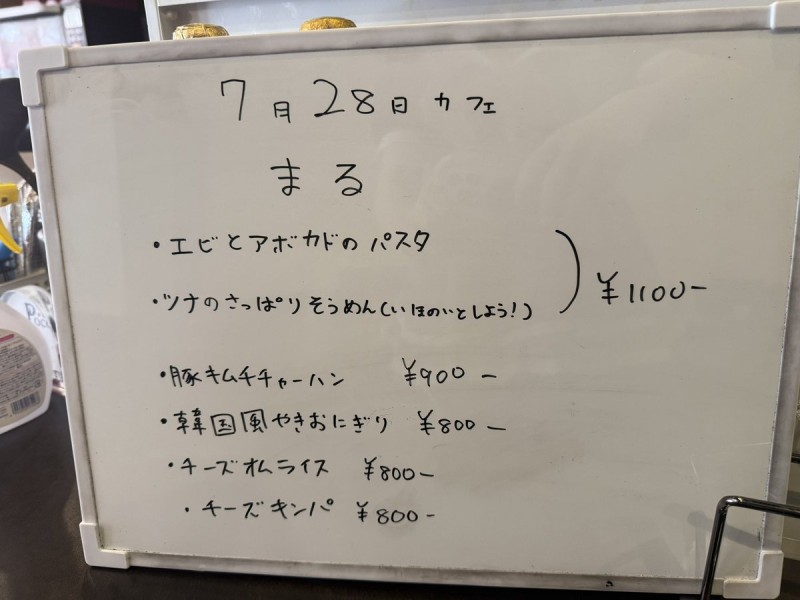 7月28日 カフェ
まる
・エビとアボカドのパスタ
・ツナのさっぱりそうめん(いほのいとしよう!)
¥1100-
・豚キムチチャーハン ¥900-
・韓国風やきおにぎり ¥800-
・チーズオムライス ¥800-
・チーズキンパ ¥800-